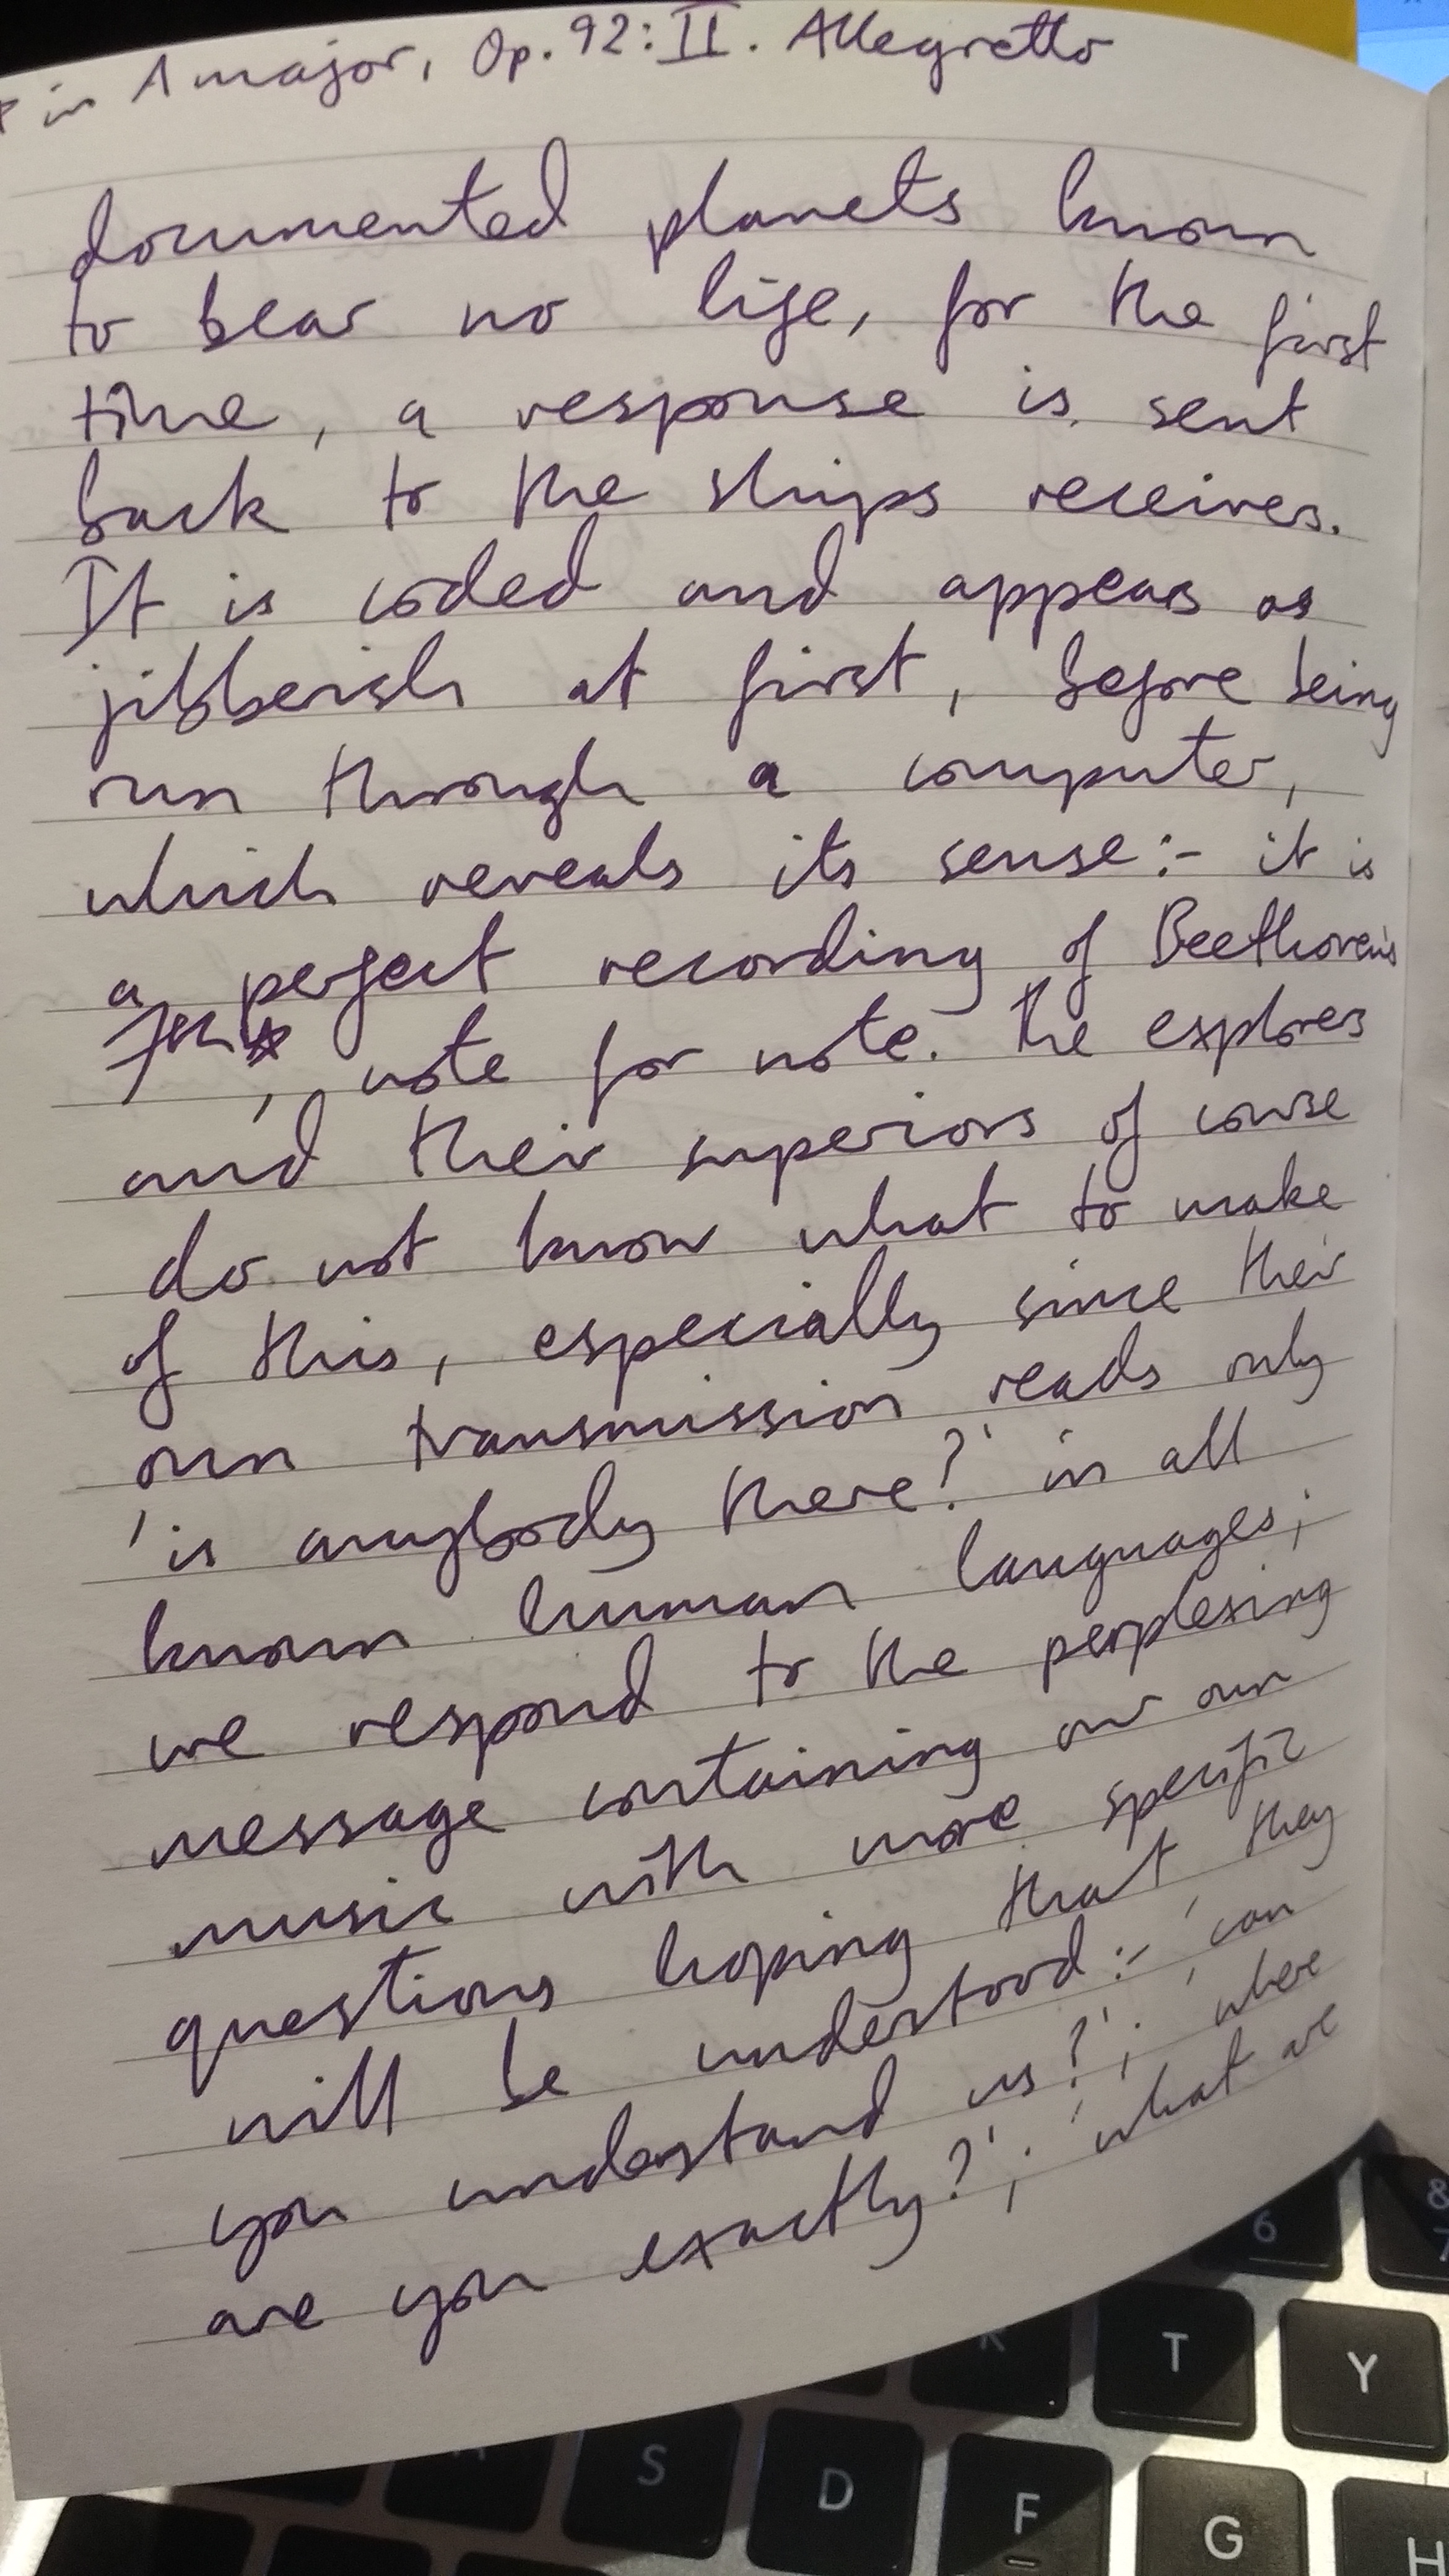 * in A major, Op. 92: II. Allegretto
documented planets known
to bear no life, for the first
time, a response is sent
back to the ships receiver.
It is coded and appears as
jibberish at first, before being
run through a computer,
which reveals its sense:- it is
a perfect recording of Beethoven's
7th*, note for note. The explorers
and their superiors of course
do not know what to make
of this, especially since their
own transmission reads only
'is anybody there?' in all
known human languages;
we respond to the perplexing
message containing our own
music with more specific
questions hoping that they
will be understood:- 'can
you understand us?'; 'where
are you exactly?'; 'what are
6
&
7
R
T
Y
S
D
F
G
H